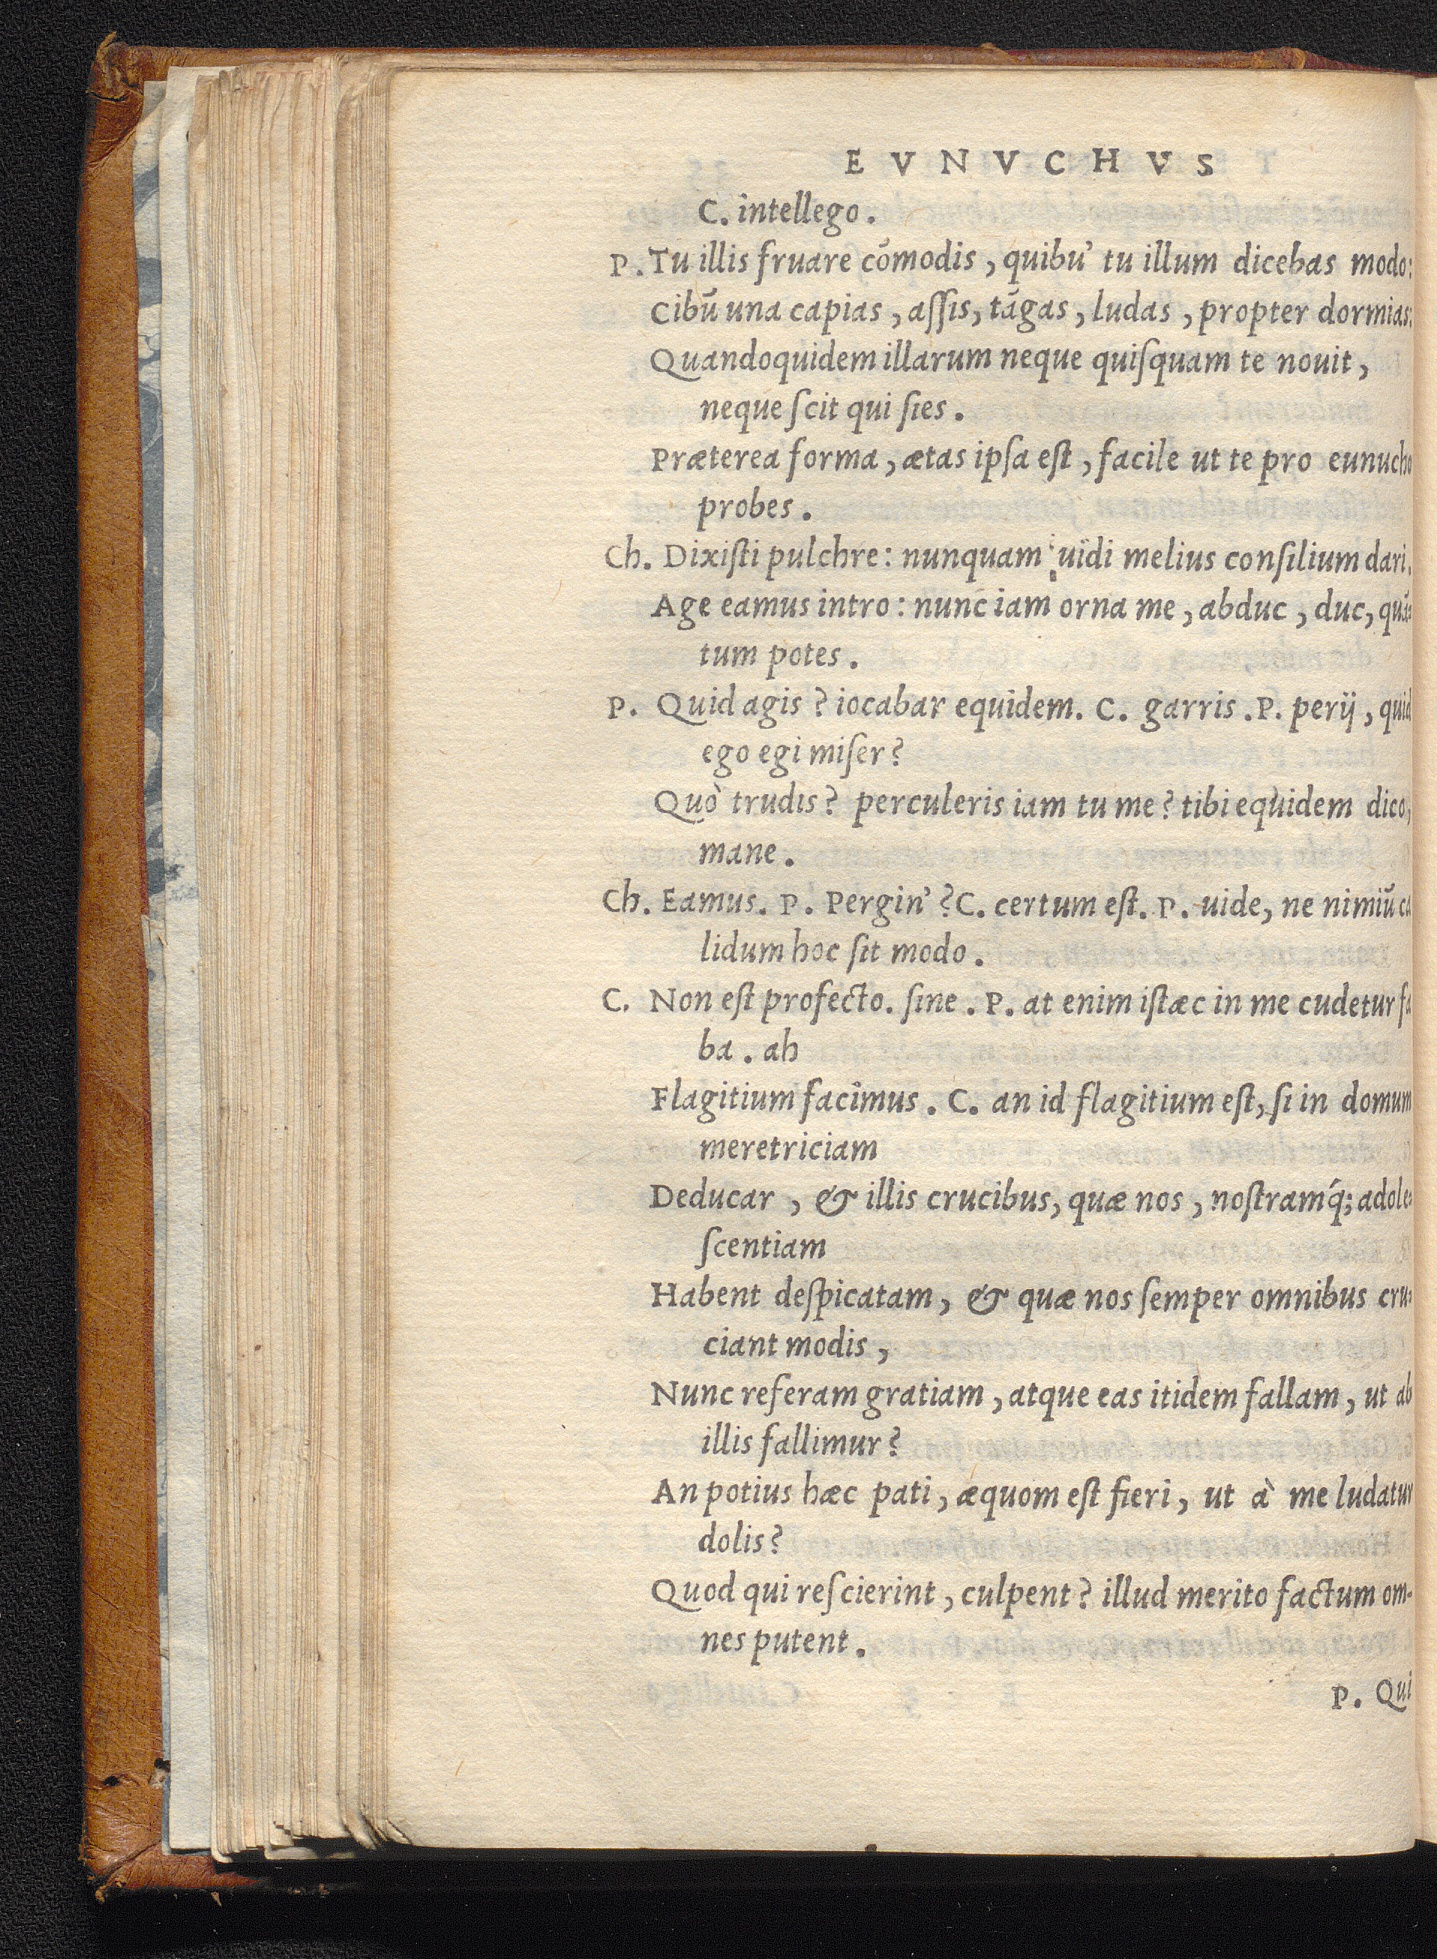 EVNVCHVS
C. intellego.
P. Tu illis fruare cōmodis, quibu' tu illum dicebas modo:
Cibū una capias, aſſis, tāgas, ludas, propter dormias:
Quandoquidem illarum neque quiſquam te nouit,
neque ſcit qui ſies.
Præterea forma, ætas ipſa eſt, facile ut te pro eunucho
probes.
Ch. Dixiſti pulchre: nunquam uidi melius conſilium dari.
Age eamus intro: nunc iam orna me, abduc, duc, quā-
tum potes.
P. Quid agis? iocabar equidem. C. garris. P. perij, quid
ego egi miſer?
Quò trudis? perculeris iam tu me? tibi equidem dico,
mane.
Ch. Eamus. P. Pergin'? C. certum eſt. P. uide, ne nimiū ca
lidum hoc ſit modo.
C. Non eſt profecto. ſine. P. at enim iſtæc in me cudetur fa
ba. ah
Flagitium facimus. C. an id flagitium eſt, ſi in domum
meretriciam
Deducar, & illis crucibus, quæ nos, noſtramq́; adole-
ſcentiam
Habent deſpicatam, & quæ nos ſemper omnibus cru-
ciant modis,
Nunc referam gratiam, atque eas itidem fallam, ut ab
illis fallimur?
An potius hæc pati, æquom eſt fieri, ut à me ludatur
dolis?
Quod qui reſcierint, culpent? illud merito factum om-
nes putent.
P. Qui